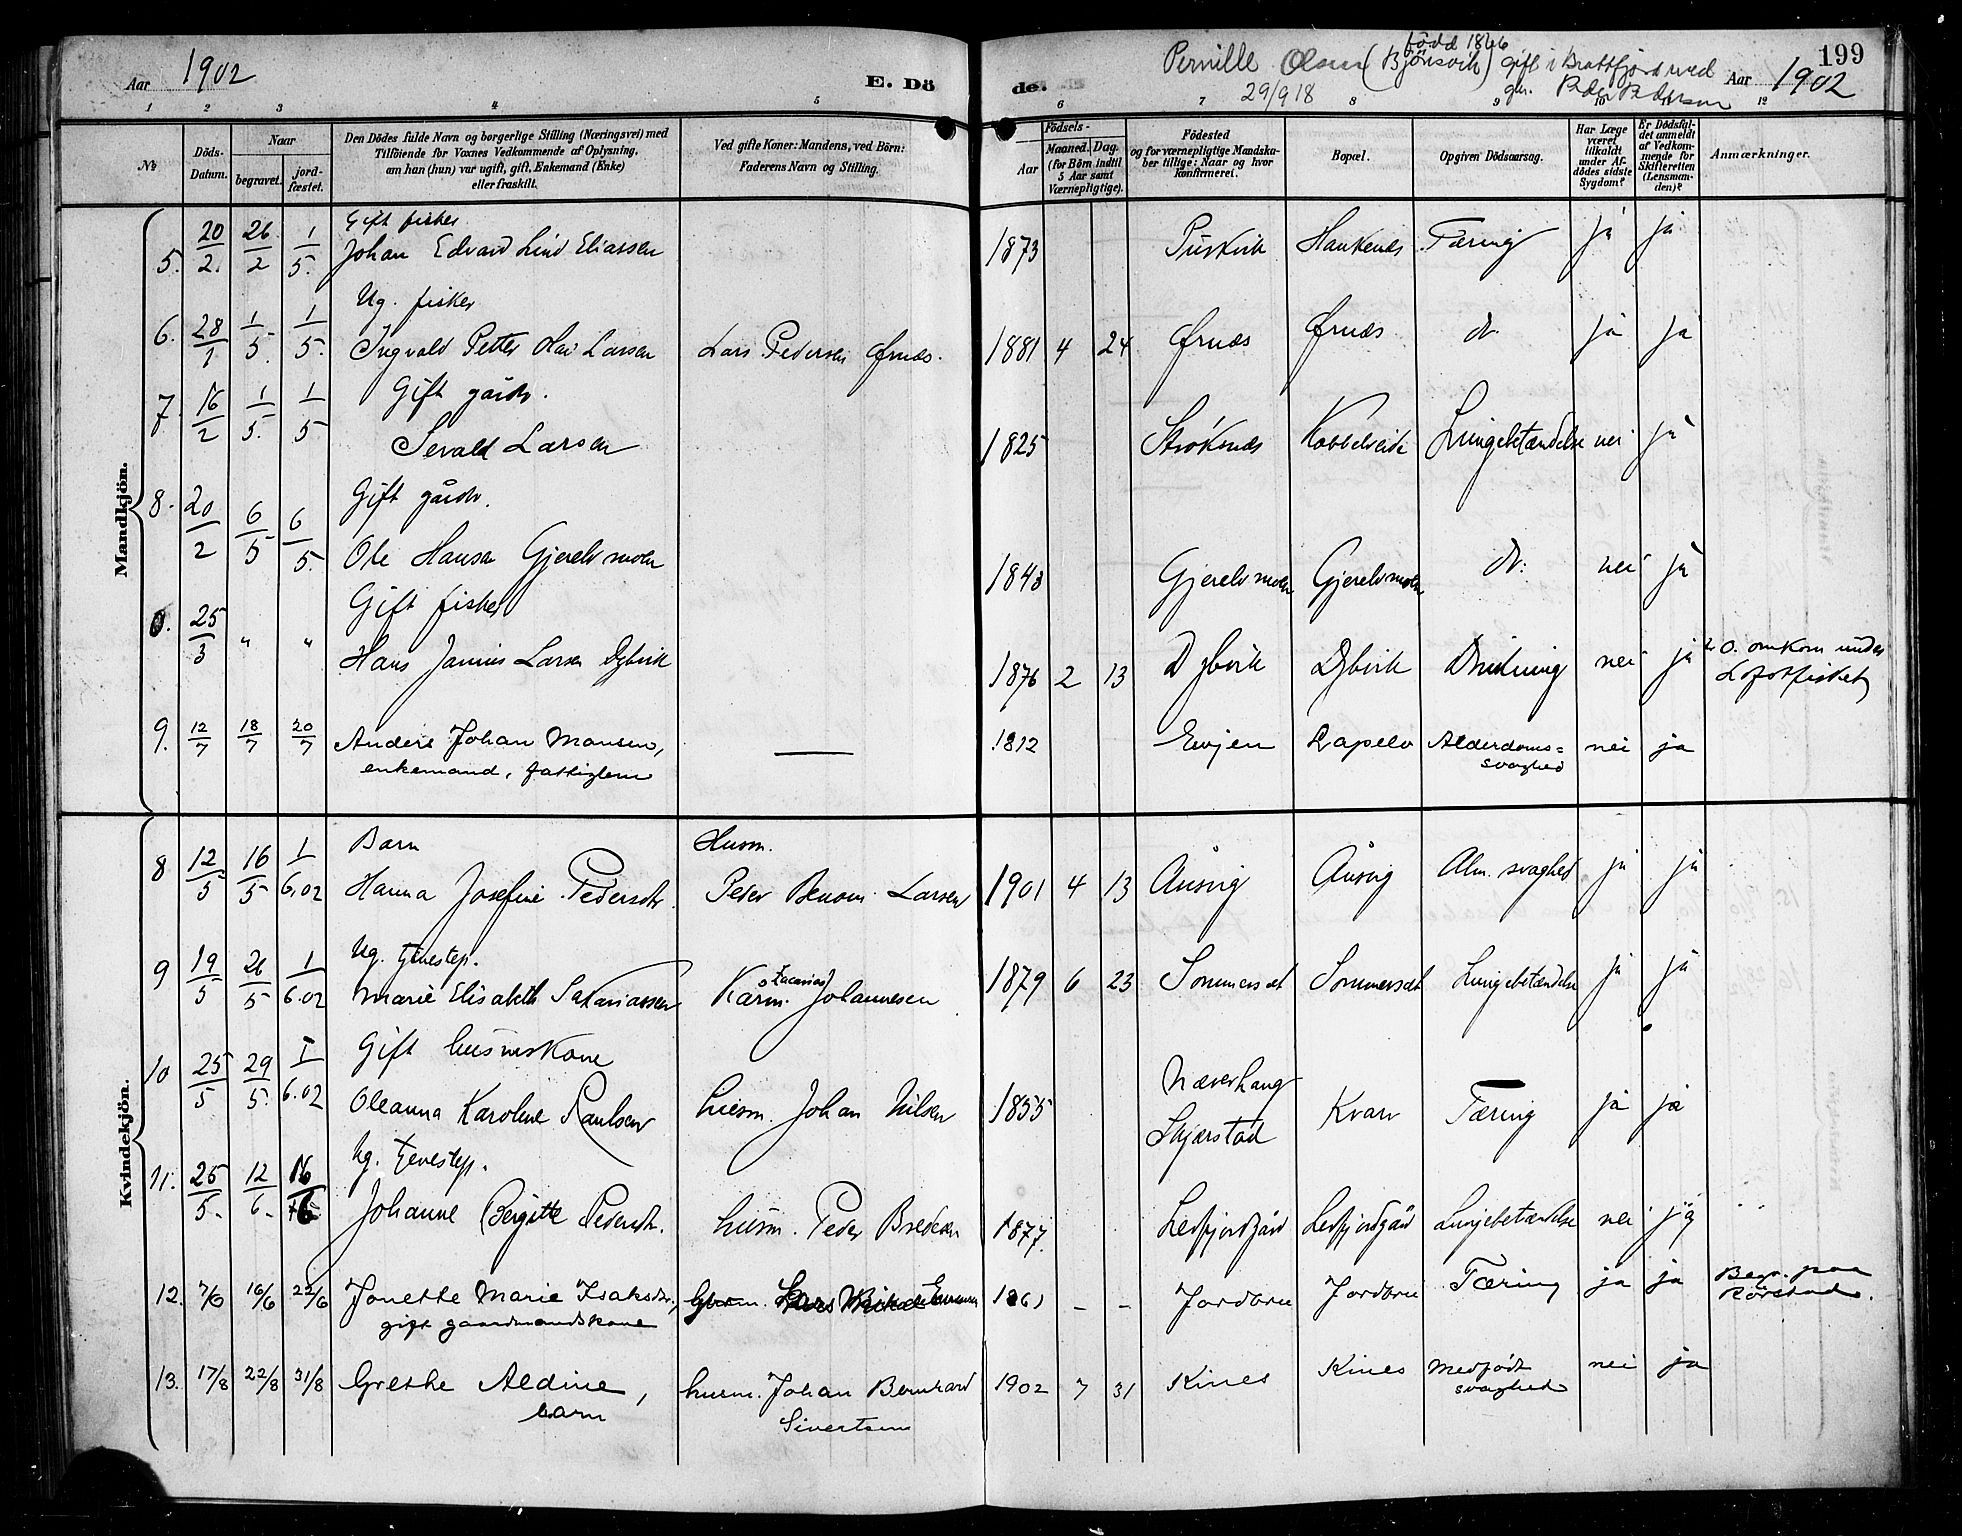 Aar 1902
E. Dö
de.
Pernille Olsen (Bjönsvik) gift i Brattfjord med
född 1866
29/9 18
gm. Peder Pedersen
Aar 1902
199
1 2 3 4 5 6 7 8 9 10 12
No
Döds-Datum.
Naar
begravet.
jordfæstet.
Den Dödes fulde Navn og borgerlige Stilling (Næringsvei) med
Tilföiende for Voxnes Vedkommende af Oplysning,
om han (hun) var ugift, gift, Enkemand (Enke)
eller fraskilt.
Ved gifte Koner: Mandens, ved Börn:
Faderens Navn og Stilling.
Födsels-
Aar
Maaned. Dag.
(for Börn indtil
5 Aar samt
Værnepligtige).
Födested
og for værnepligtige Mandska-
ber tillige: Naar og hvor
konfirmeret.
Bopæl.
Opgiven Dödsaarsag.
Har Læge
været
tilkaldt
under Af-
dödes sidste
Sygdom?
Er Dödsfal-
det anmeldt
af Vedkom-
mende for
Skifteretten
(Lensman-
den)?
Anmærkninger.
Mandkjön.
Gift fisker
5. 20/2. 26/2 1/5. Johan Edvard Lind Eliassen 1873 Haukenes Tæring ja ja
Ug. fisker
6. 28/1 1/5. 1/5. Ingvald Petter Larsen Lars Pedersen Ørnæs. 1881 4 24 Ørnæs Ørnæs do ja ja
Gift gårdb.
7. 16/2 1/5. 1/5 Sevald Larsen 1825 Strøksnes Kobbelveide Lungebetændelse nei ja
Gift gårdb.
8. 20/2 6/5 6/5. Ole Hansen Gjerelvmoen 1848 Gjerelvmoen Gjerelvmoen do: nei ja
Gift fisker
0. 25/3 " " Hans Janius Larsen Dybvik 1876 2 13 Dybvik Dybvik Drukning nei ja omkom under
Lofotfisket
9. 12/7 18/7 20/7 Anders Johan Monsen, — 1812 Evjen Lapelv Alderdoms= nei ja
enkemand, fattiglem svaghed
Kvindekjön.
Barn Husm.
8 12/5 16/5 1/6.02 Hanna Josefine Pedersdtr. Peder Benoni Larsen 1901 4 13 Ånsvig Ånsvig Alm. svaghed ja ja
Ug. tjenestep. Zacarias
9 19/5 26/5 1/6.02 Marie Elisabeth Sakariassen Kårm. Johannesen 1879 6 23 Sommerset Sommerset Lungebetændelse ja ja
Gift husmskone
10 25/5 29/5. 1/6.02 Oleanna Karoline Paulsen husm. Johan Nilsen 1855 Næverhaug
Skjærstad Kvarv Tæring ja ja
Ug. tjenestep.
11. 25/5. 12/6. 16/6 Johanne Bergitte Pedersdtr. husm. Peder Bredesen 1877. Leirfjordgård Leirfjordgård Lungebetændelse nei ja
12. 7/6 16/6 22/6 Jonette Marie Isaksdtr., Gbrm. 1861 - - Jordbru Jordbru Tæring ja ja Begr. paa
gift gaardmandskone Rörstad.
13. 17/8 22/8 31/8 Grethe Aldine, husm. Johan Bernhard 1902 7 31 Kines Kines Medfödt nei ja
barn Sivertsen svaghed